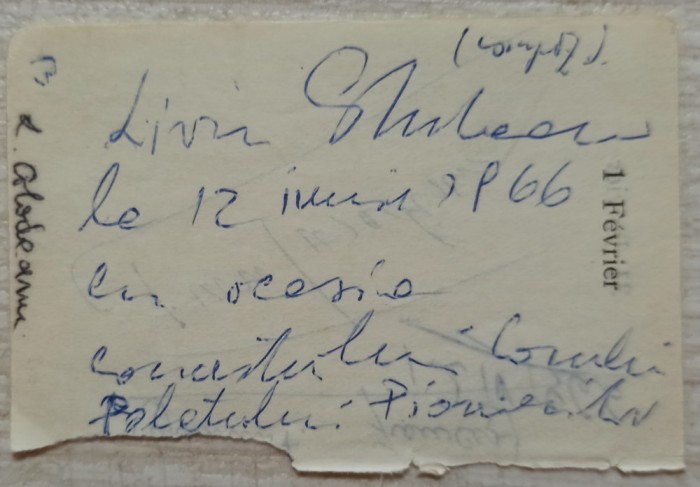 (compoz).
Liviu Glodeanu
le 12 iunie 1966
cu ocazia
concertului Corului
Palatului Pionierilor
L. Glodeanu
1 Février